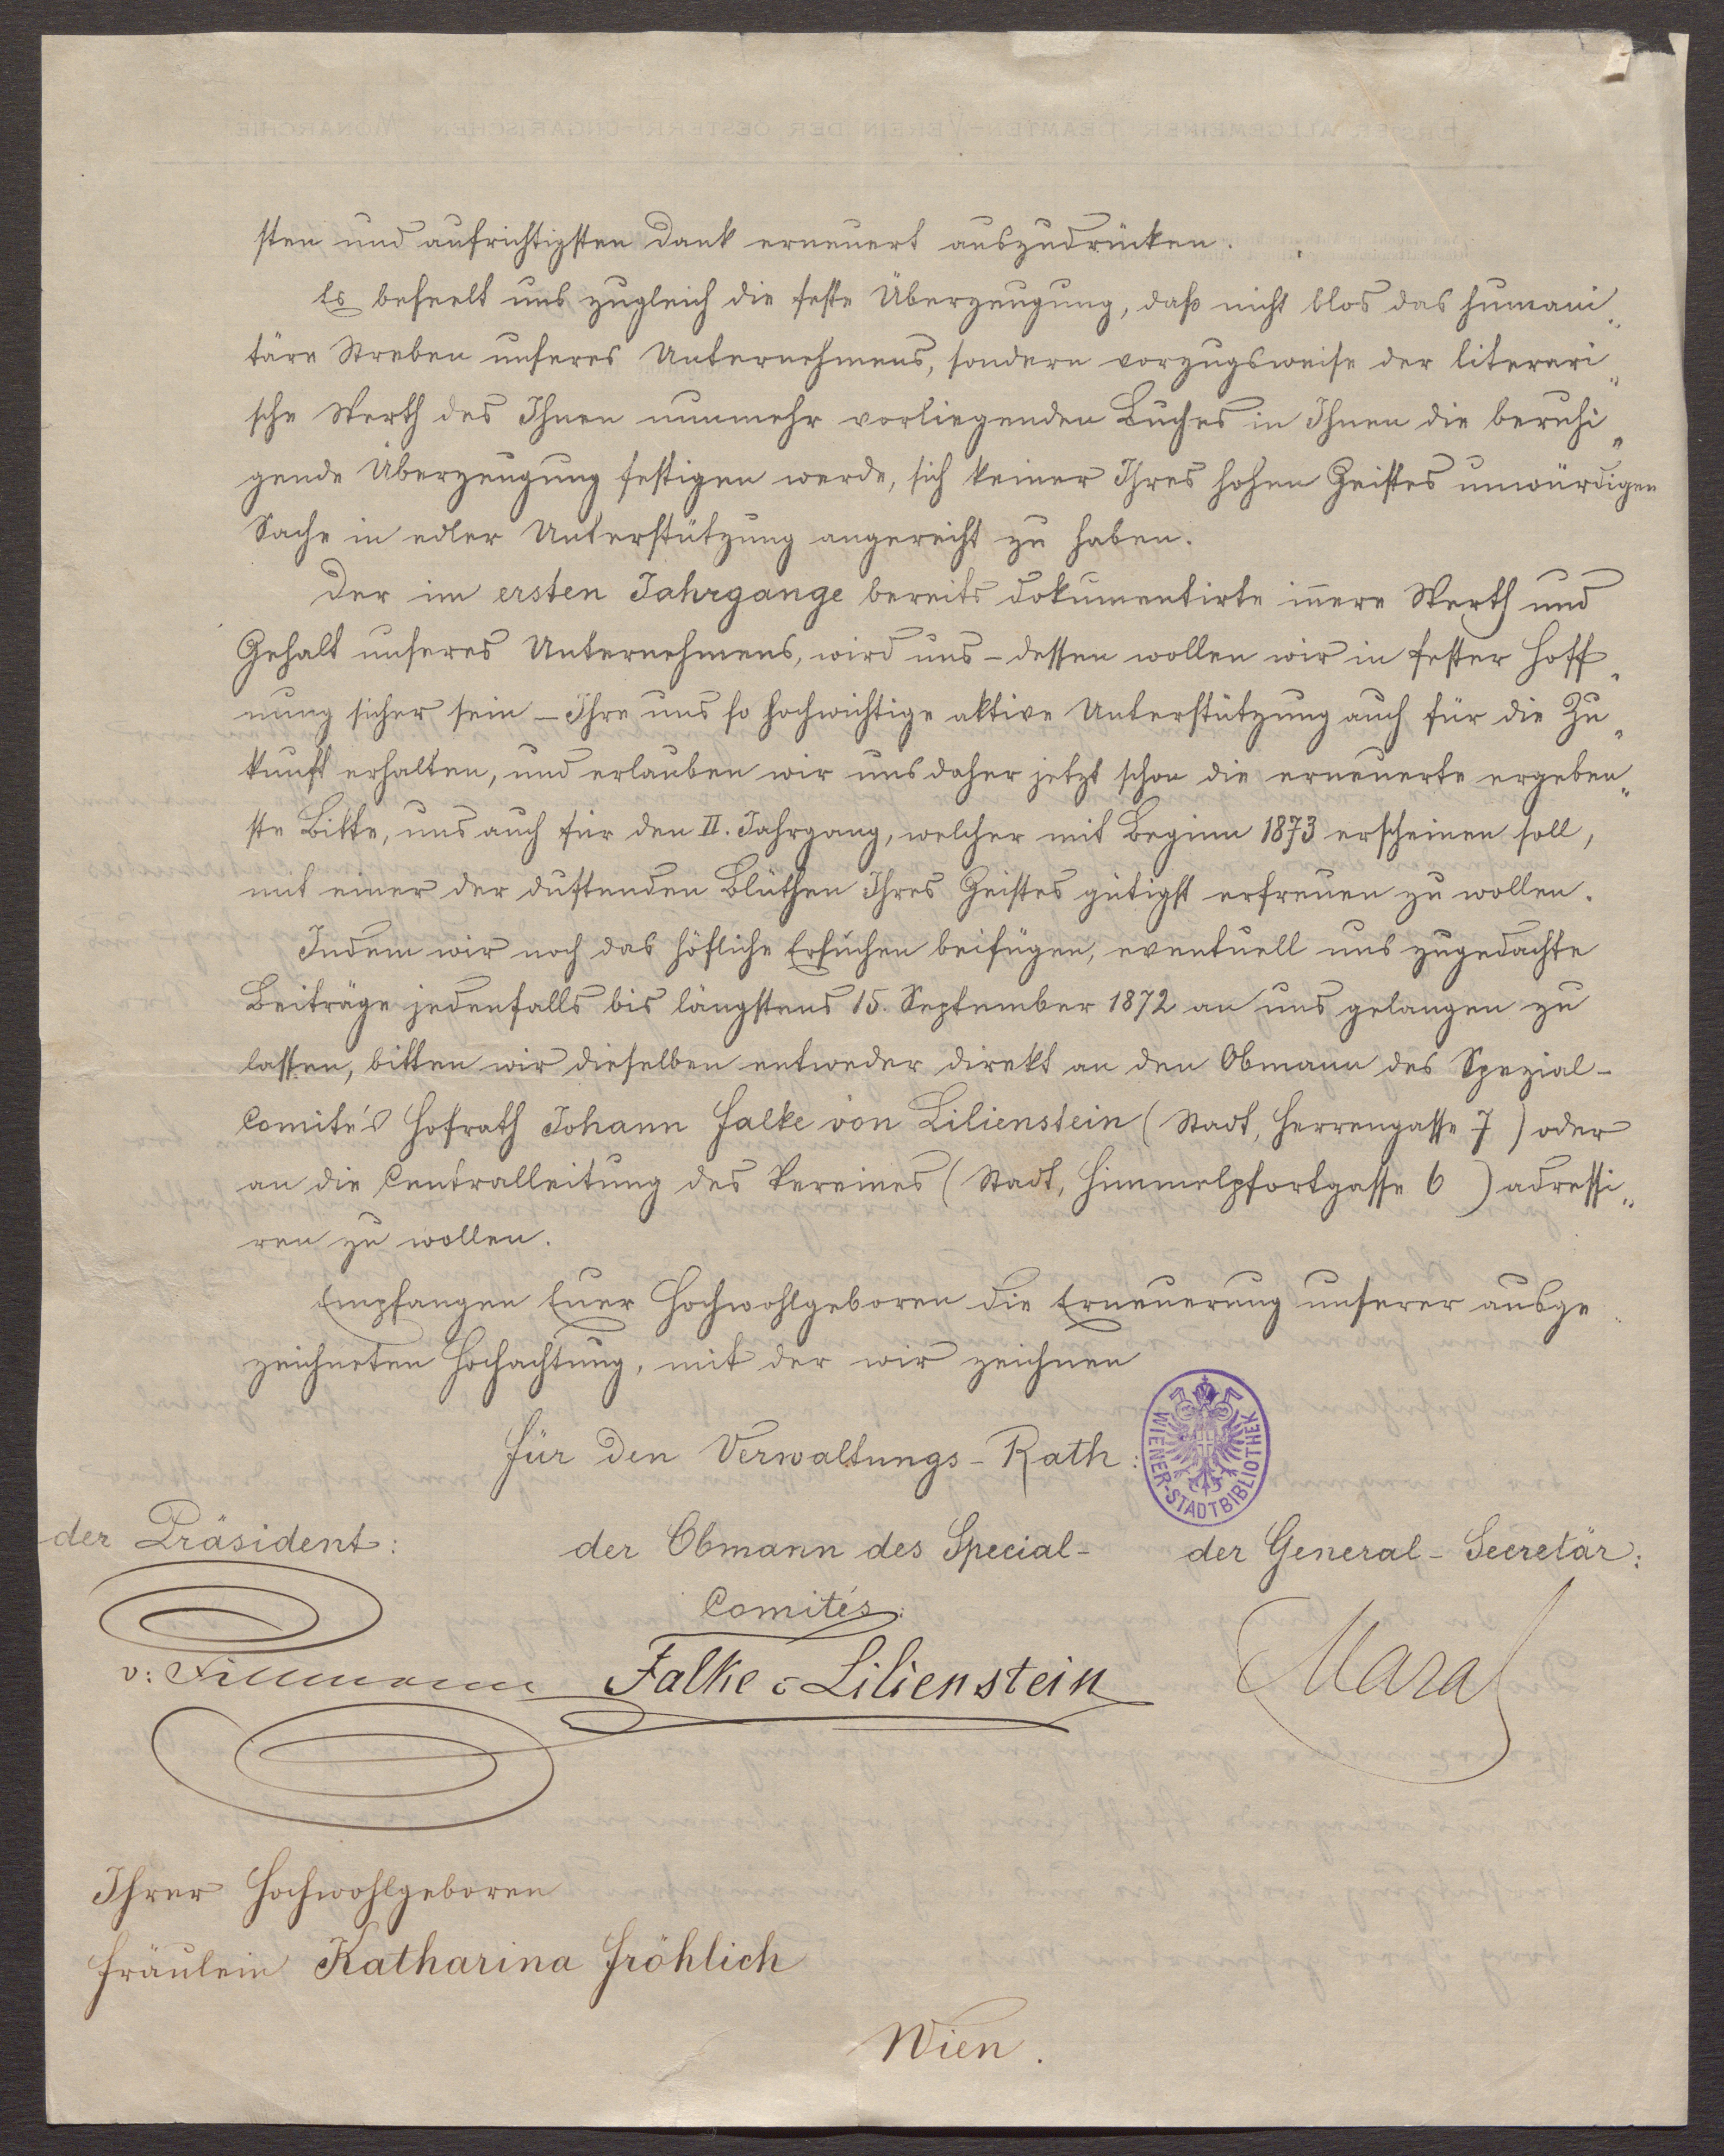 sten und aufrichtigsten Dank erneuert auszudrücken.
Es beseelt uns zugleich die feste Überzeugung, daß nicht blos das humani„
täre Streben unseres Unternehmens, sondern vorzugsweise der literari„
sche Werth des Ihnen nunmehr vorliegenden Buches in Ihnen die beruhi„
gende Überzeugung festigen werde, sich keiner Ihres hohen Geistes unwürdigen
Sache in edler Unterstützung angereiht zu haben.
Der im ersten Jahrgange bereits dokumentirte iñere Werth und
Gehalt unseres Unternehmens, wird uns – dessen wollen wir in fester Hoff„
nung sicher sein – Ihre uns so hochwichtige aktive Unterstützung auch für die Zu„
kunft erhalten, und erlauben wir uns daher jetzt schon die erneuerte ergeben„
ste Bitte, uns auch für den II. Jahrgang, welcher mit Beginn 1873 erscheinen soll,
mit einer der duftenden Blüthen Ihres Geistes gütigst erfreuen zu wollen.
Indem wir noch das höfliche Ersuchen beifügen, eventuell uns zugedachte
Beiträge jedenfalls bis längstens 15. September 1872 an uns gelangen zu
lassen, bitten wir dieselben entweder direkt an den Obmann des Spezial-
Comités Hofrath Johann Falke von Lilienstein (Stadt, Herrengasse 7) oder
an die Centralleitung des Vereines (Stadt, Himmelpfortgasse 6) adressi„
ren zu wollen.
Empfangen Euer Hochwohlgeboren die Erneuerung unserer ausge„
zeichneten Hochachtung, mit der wir zeichnen
für den Verwaltungs-Rath:
WIENER-STADTBIBLIOTHEK
der Präsident:
der Obmann des Special-
der General-Secretär:
Comités:
Falke v Lilienstein
Ihrer Hochwohlgeboren
Fräulein Katharina Fröhlich
Wien.